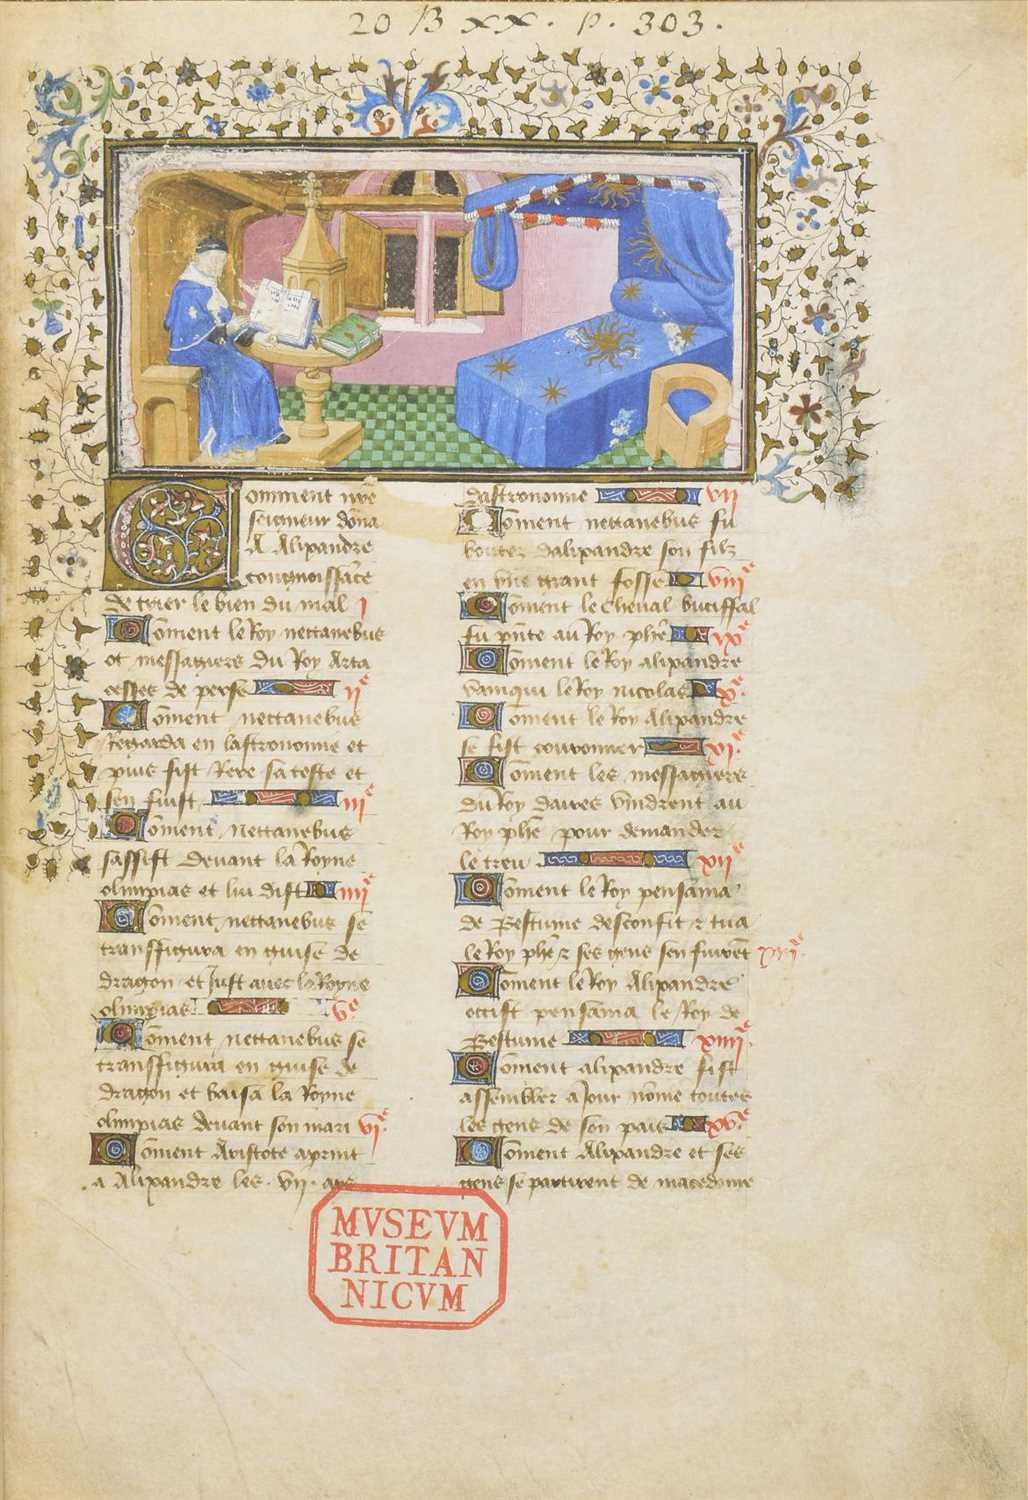 20 B xx. p. 303.
Comment nře
seigneur dōna
A Alixandre
congnoissāce
de trier le bien du mal I
Cōment le Roy nectanebus
et messagiers du Roy Arta
de perse iie
Cōment nectanebus
Regarda en lastronomie et
puis fist Rere sa teste et
sen fuist iiie
Cōment nectanebus
sassist devant la Royne
olimpias et lui dist iiiie
Cōment nectanebus se
transfigura en guise de
dragon et Just avec la Royne
olimpias ve
Cōment nectanebus se
transfigura en guise de
dragon et baisa la Royne
olimpias devant son mari vie
Cōment Aristote aprint
a Alixandre les .vii. ars
dastronomie vii
Cōment nectanebus fu
boutez dalixandre son filz
en une grant fosse viiie
Cōment le cheval buciffal
fu pn̄te au Roy phē ixe
Cōment le Roy alixandre
vainqui le Roy nicolas xe
Cōment le Roy Alixandre
se fist couronner xie
Cōment les messagiers
du Roy daires vindrent au
Roy phē pour demander
le treu xiie
Cōment le Roy
de desconfit & tua
le Roy phē & ses gens sen fuirēt xiiie
Cōment le Roy Alixandre
occist le Roy de
xiiiie
Cōment alixandre fist
assembler a Jour nōme toutes
les gens de son pais xve
Cōment Alixandre et ses
gens se partirent de macedoine
MVSEVM
BRITAN
NICVM